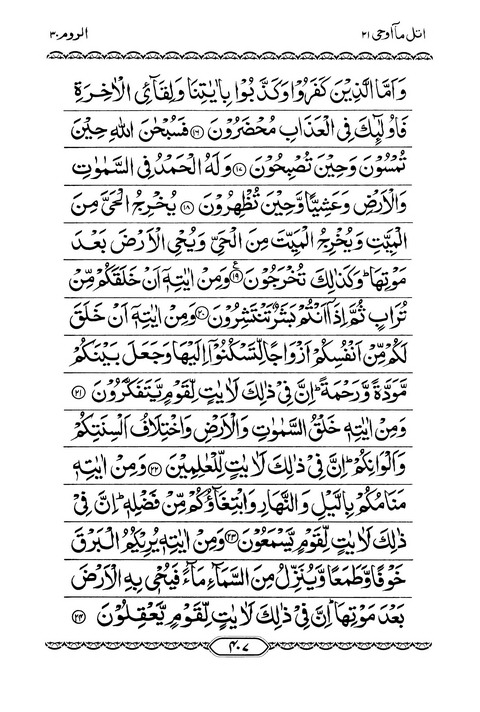 اتل مآاوحی ۲۱
الروم ۳۰
وَاَمَّا الَّذِيْنَ كَفَرُوْا وَكَذَّبُوْا بِاٰيٰتِنَا وَلِقَآئِ الْاٰخِرَةِ
فَاُولٰٓئِكَ فِى الْعَذَابِ مُحْضَرُوْنَ ۝۱۶ فَسُبْحٰنَ اللّٰهِ حِيْنَ
تُمْسُوْنَ وَحِيْنَ تُصْبِحُوْنَ ۝۱۷ وَلَهُ الْحَمْدُ فِى السَّمٰوٰتِ
وَالْاَرْضِ وَعَشِيًّا وَّحِيْنَ تُظْهِرُوْنَ ۝۱۸ يُخْرِجُ الْحَىَّ مِنَ
الْمَيِّتِ وَيُخْرِجُ الْمَيِّتَ مِنَ الْحَىِّ وَيُحْىِ الْاَرْضَ بَعْدَ
مَوْتِهَا ؕ وَكَذٰلِكَ تُخْرَجُوْنَ ۝۱۹ۧ وَمِنْ اٰيٰتِهٖۤ اَنْ خَلَقَكُمْ مِّنْ
تُرَابٍ ثُمَّ اِذَاۤ اَنْتُمْ بَشَرٌ تَنْتَشِرُوْنَ ۝۲۰ وَمِنْ اٰيٰتِهٖۤ اَنْ خَلَقَ
لَكُمْ مِّنْ اَنْفُسِكُمْ اَزْوَاجًا لِّتَسْكُنُوْۤا اِلَيْهَا وَجَعَلَ بَيْنَكُمْ
مَّوَدَّةً وَّرَحْمَةً ؕ اِنَّ فِىْ ذٰلِكَ لَاٰيٰتٍ لِّقَوْمٍ يَّتَفَكَّرُوْنَ ۝۲۱
وَمِنْ اٰيٰتِهٖ خَلْقُ السَّمٰوٰتِ وَالْاَرْضِ وَاخْتِلَافُ اَلْسِنَتِكُمْ
وَاَلْوَانِكُمْ ؕ اِنَّ فِىْ ذٰلِكَ لَاٰيٰتٍ لِّلْعٰلِمِيْنَ ۝۲۲ وَمِنْ اٰيٰتِهٖ
مَنَامُكُمْ بِالَّيْلِ وَالنَّهَارِ وَابْتِغَآؤُكُمْ مِّنْ فَضْلِهٖ ؕ اِنَّ فِىْ
ذٰلِكَ لَاٰيٰتٍ لِّقَوْمٍ يَّسْمَعُوْنَ ۝۲۳ وَمِنْ اٰيٰتِهٖ يُرِيْكُمُ الْبَرْقَ
خَوْفًا وَّطَمَعًا وَّيُنَزِّلُ مِنَ السَّمَآءِ مَآءً فَيُحْىٖ بِهِ الْاَرْضَ
بَعْدَ مَوْتِهَا ؕ اِنَّ فِىْ ذٰلِكَ لَاٰيٰتٍ لِّقَوْمٍ يَّعْقِلُوْنَ ۝۲۴
۴۰۷